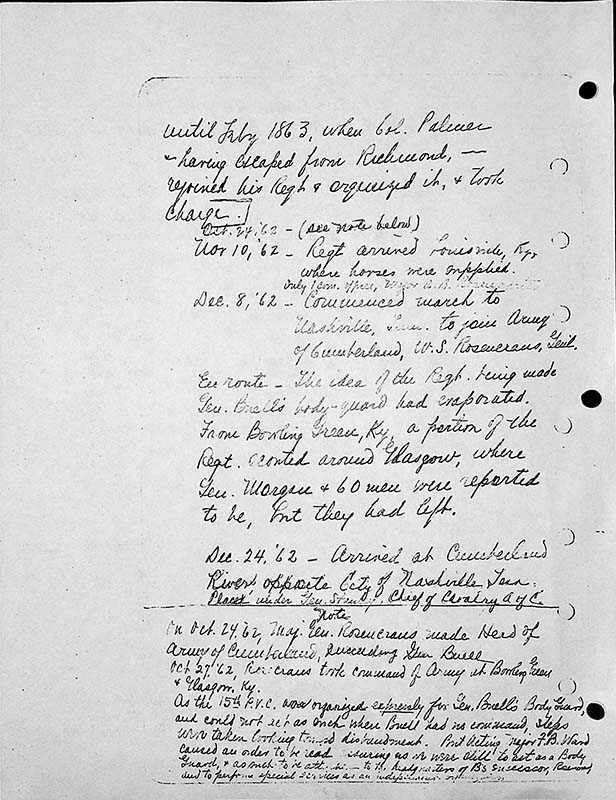 until Feby 1863, when Col. Palmer
- having escaped from Richmond, -
rejoined his Regt & organized it, & took
charge.]
Oct. 24, '62 - (see note below)
Nov 10, '62 - Regt arrived Louisville, Ky,
where horses were supplied.
Only 1 com. officer, Major A. B.
Dec. 8, '62 - Commenced march to
Nashville, Tenn. to join Army
of Cumberland, W.S. Rosencrans, Genl.
En route - The idea of the Regt. being made
Gen. Buell's body-guard had evaporated.
From Bowling Green, Ky, a portion of the
Regt. scouted around Glasgow, where
Gen. Morgan & 60 men were reported
to be, but they had left.
Dec. 24, '62 - Arrived at Cumberland
River opposite City of Nashville Tenn.
Placed under Gen. Stanley, Chief of Cavalry A of C.
Note
On Oct. 24, 62, Maj. Gen. Rosencrans made Head of
Army of Cumberland, succeeding Gen Buell
Oct 27, '62, Rosecrans took command of Army at Bowling Green
& Glasgow, Ky.
As the 15th P.V.C. was organized expressly for Gen. Buell's Body Guard,
and could not act as such when Buell had no command, steps
were taken looking toward disbandment. But Acting Major F.B. Ward
caused an order to be read assuring us we were still to act as a Body
Guard, & as such to be to the Headquarters of B's successor,
and to perform special services as an independent